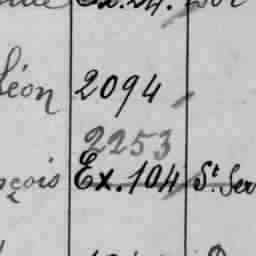 Ex. 24.
Léon 2094
2253
nçois Ex. 104 St. Ser